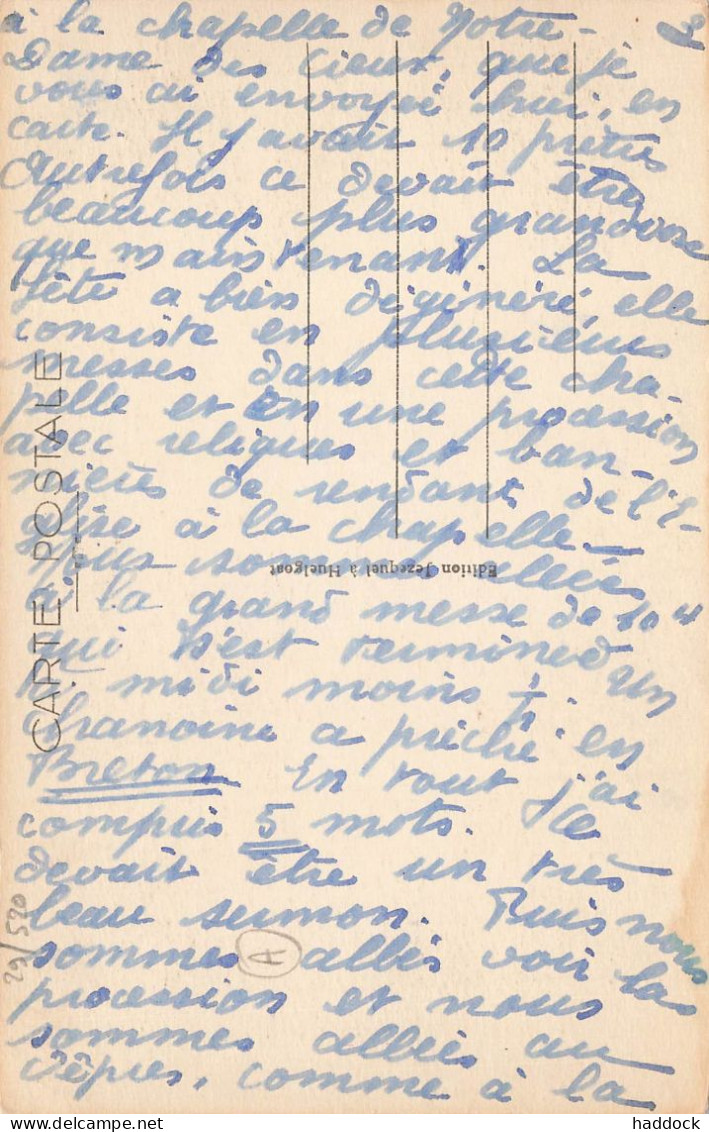 3
à la chapelle de Notre-
Dame des Cieux, que je
vous ai envoyée hier, en
carte. Il y avait 10 prêtres
Autrefois ce devait être
beaucoup plus grandiose
que maintenant. La
fête a bien dégénéré, elle
consiste en plusieurs
messes dans cette cha-
pelle et en une procession
avec reliques et ban-
nières se rendant de l'é-
glise à la chapelle.
Nous sommes allées
à la grand messe de 10 H
qui s'est terminée
à midi moins ¼. Un
chanoine a prêché en
Breton En tout j'ai
compris 5 mots. Ce
devait être un très
beau sermon. Puis nous
sommes allés voir la
procession et nous
sommes allées au
Vêpres, comme à la
CARTE POSTALE
Edition Jezequel à Huelgoat
29/520
A
haddock